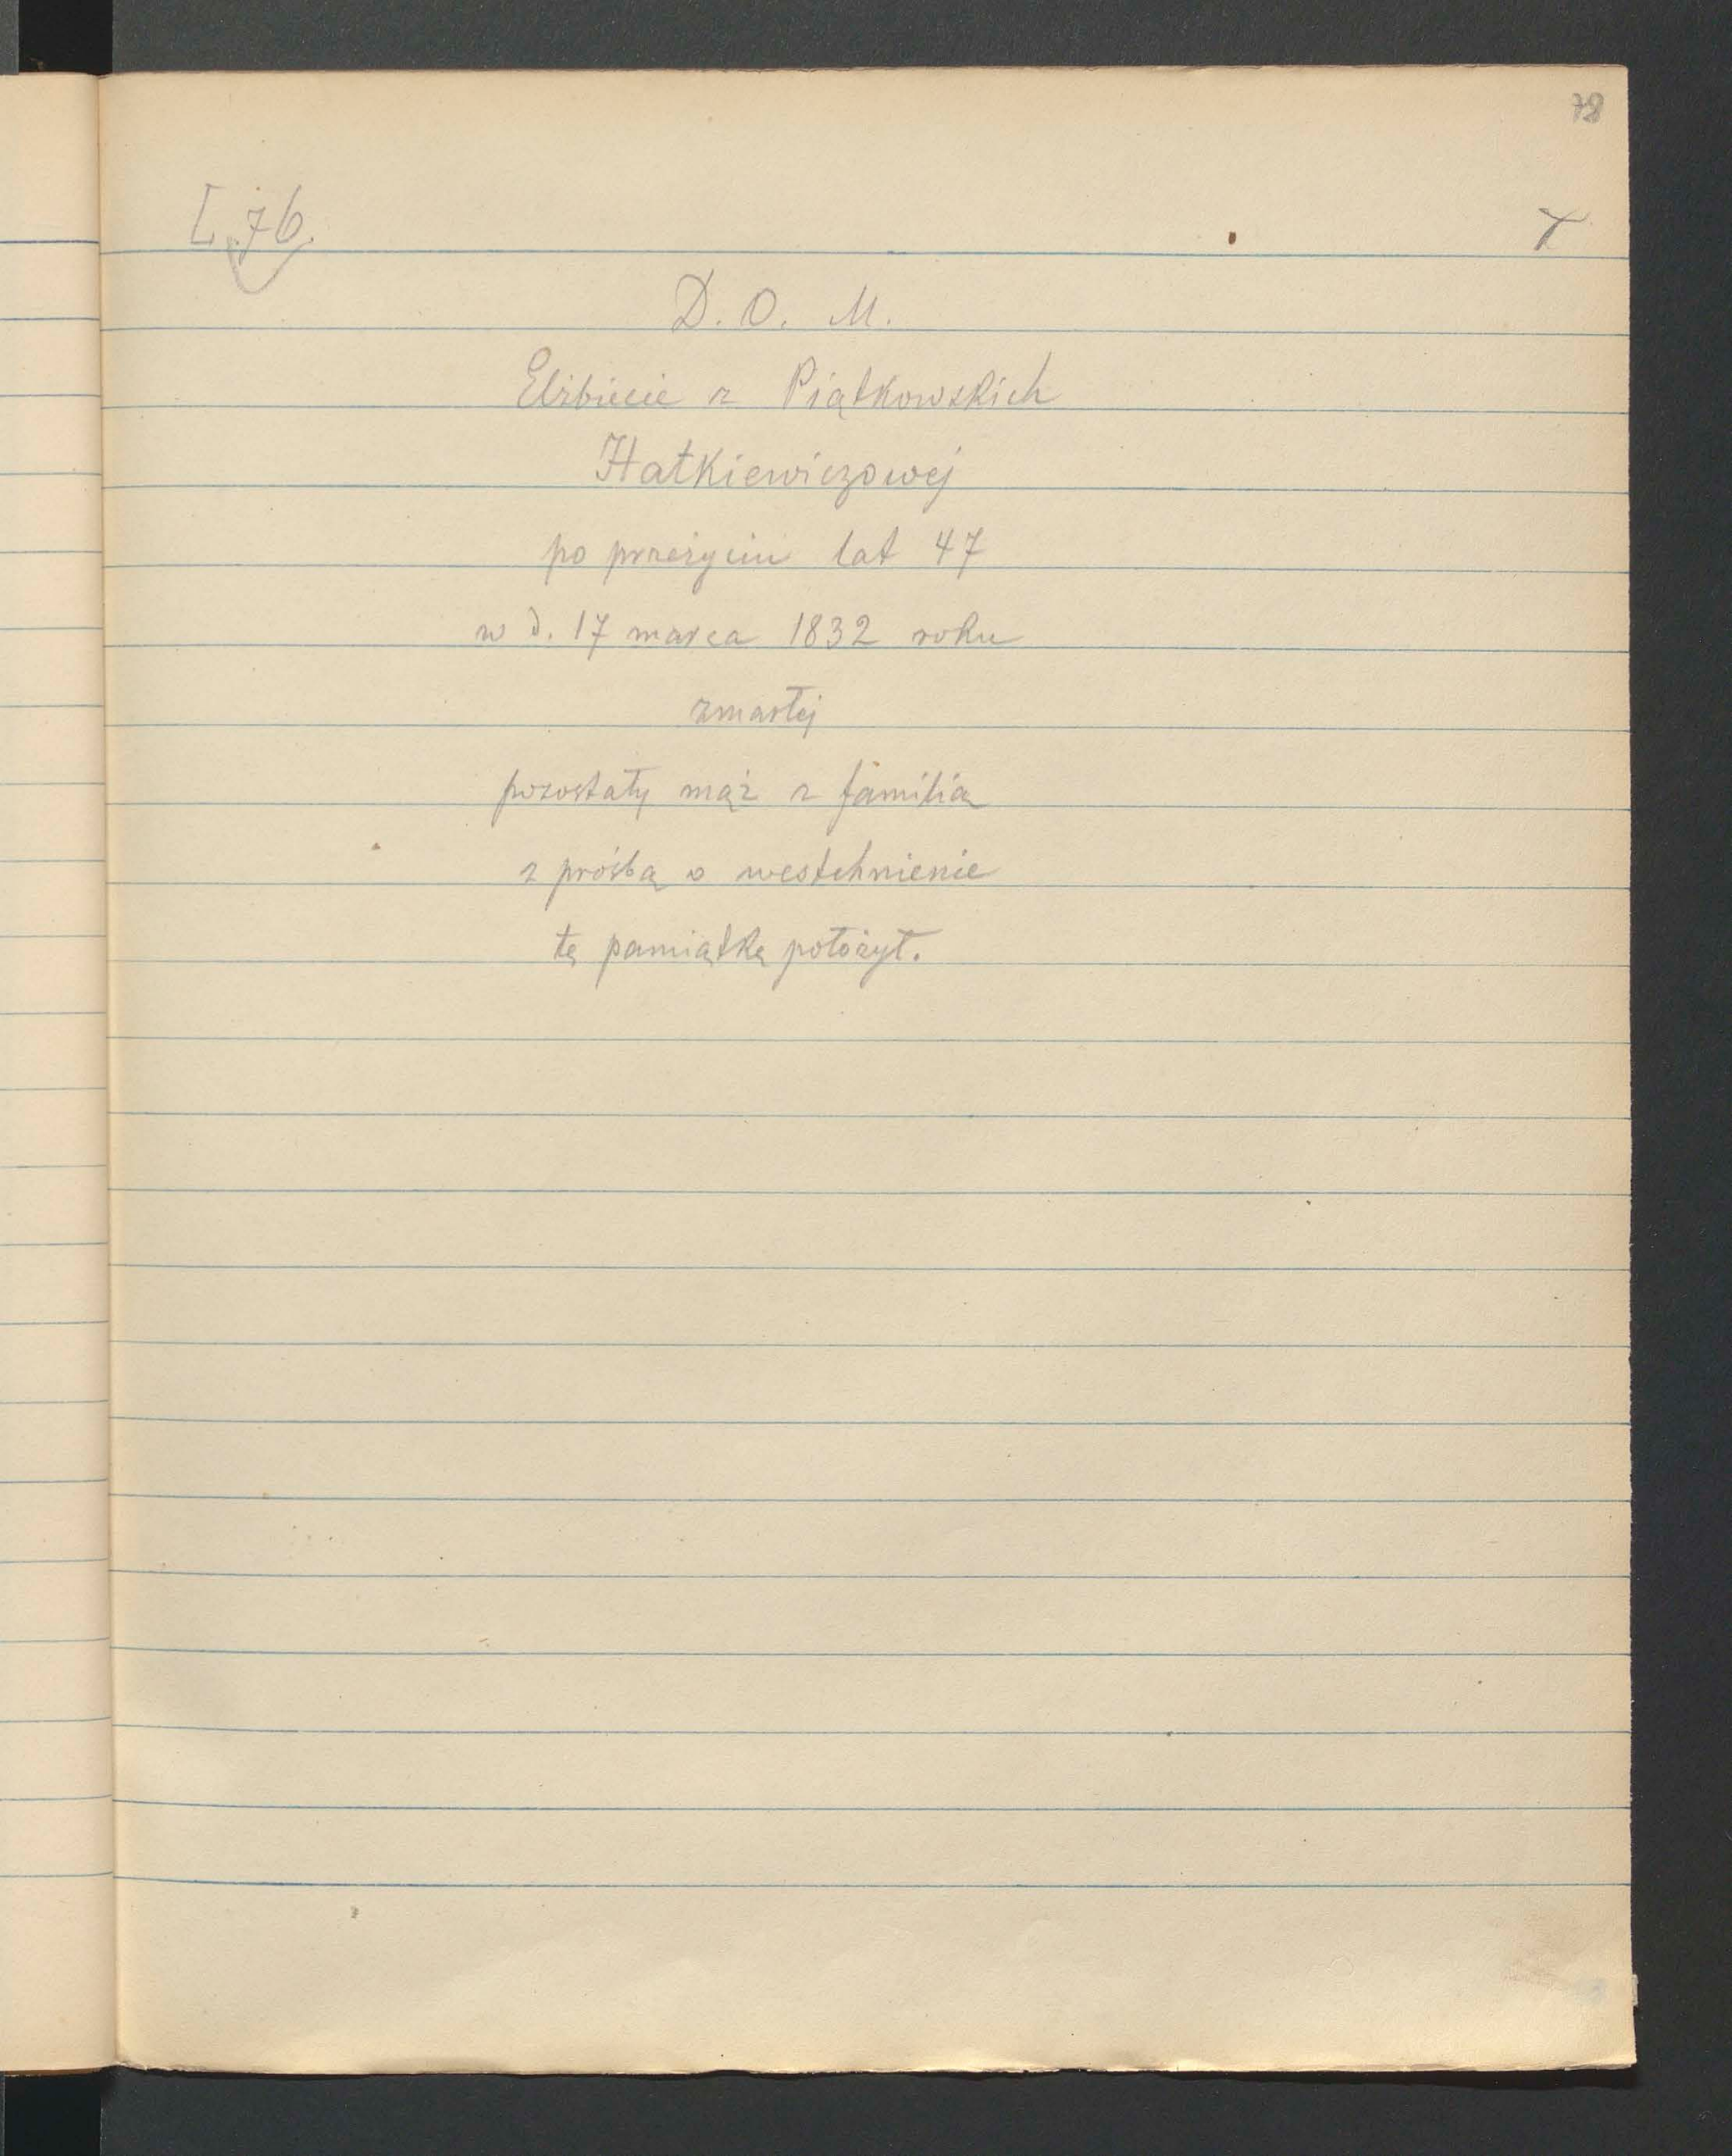 78
L. 76.
D. O. M.
Elżbiecie z Piątkowskich
Hatkiewiczowej
po przeżyciu lat 47
w d. 17 marca 1832 roku
zmarłej
pozostały mąż z familią
z prośbą o westchnienie
tę pamiątkę położył.